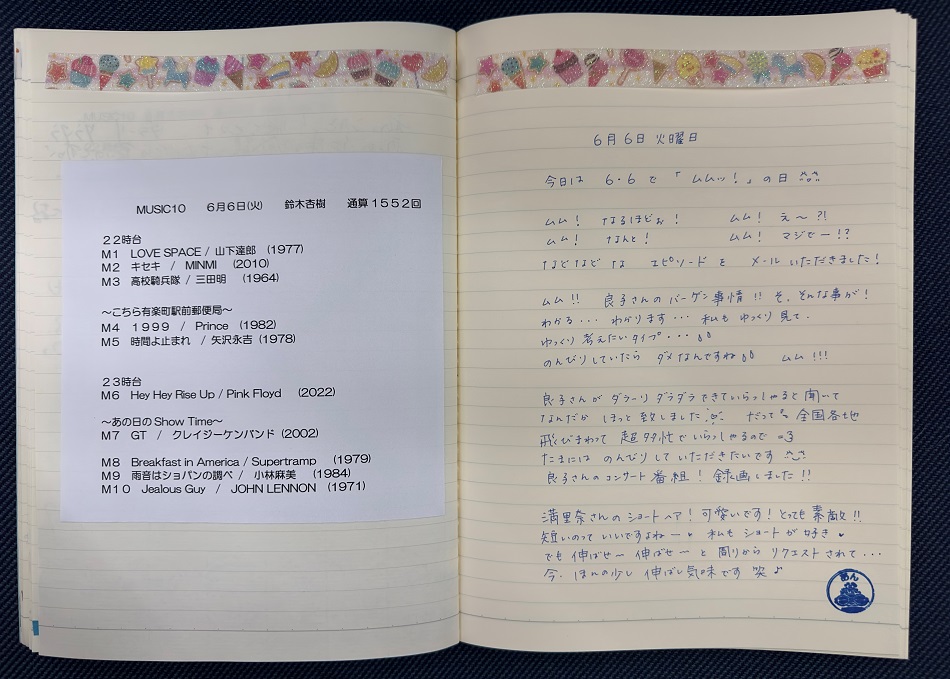 MUSIC10　6月6日(火)　鈴木杏樹　通算1552回
22時台
M1 LOVE SPACE / 山下達郎 (1977)
M2 キセキ / MINMI (2010)
M3 高校騎兵隊 / 三田明 (1964)
～こちら有楽町駅前郵便局～
M4 1999 / Prince (1982)
M5 時間よ止まれ / 矢沢永吉 (1978)
23時台
M6 Hey Hey Rise Up / Pink Floyd (2022)
～あの日の Show Time～
M7 GT / クレイジーケンバンド (2002)
M8 Breakfast in America / Supertramp (1979)
M9 雨音はショパンの調べ / 小林麻美 (1984)
M10 Jealous Guy / JOHN LENNON (1971)
6月6日 火曜日
今日は 6・6で「ムムッ!」の日 ^o^
ムム! なるほどぉ! ムム! え～?!
ムム! なんと! ムム! マジでー!?
などなどな エピソードを メールいただきました!
ムム!! 良子さんのバーゲン事情!! そ、そんな事が!
わかる・・・ わかります・・・ 私も ゆっくり見て、
ゆっくり 考えたいタイプ・・・
のんびりしていたら ダメなんですね ムム!!!
良子さんが ダラーリ ダラダラできていらっしゃると聞いて
なんだか ほっと致しました だって 全国各地
飛びまわって 超多忙でいらっしゃるので =3
たまには のんびりして いただきたいです ^o^
良子さんのコンサート番組! 録画しました!!
満里奈さんの ショートヘア! 可愛いです! とっても素敵!!
短いのって いいですよねー♥ 私も ショートが好き♥
でも 伸ばせ～ 伸ばせ～ と 周りから リクエストされて・・・
今、ほんの少し 伸ばし気味です 笑♪
あん